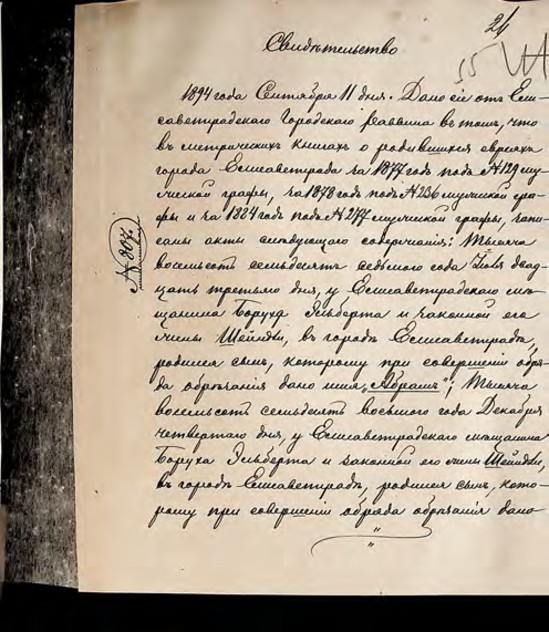 21
55
Свидѣтельство
1894 года Сентября 11 дня. Дано сіе отъ Ели-
саветградскаго Городскаго Раввина въ томъ, что
въ метрическихъ книгахъ о родившихся евреяхъ
города Елисаветграда за 1877 годъ подъ № 129 му-
жеской графы, за 1878 годъ подъ № 236 мужеской гра-
фы и за 1884 годъ подъ № 277 мужеской графы, запи-
саны акты слѣдующаго содержанія: Тысяча
восемьсотъ семьдесятъ седьмого года Іюля двад-
цать третьяго дня, у Елисаветградскаго мѣ-
щанина Боруха Эльберта и законной его
жены Шейндли, въ городѣ Елисаветградѣ,
родился сынъ, которому при совершеніи обря-
да обрѣзанія дано имя „Абрамъ"; Тысяча
восемьсотъ семьдесятъ восьмого года Декабря
четвертаго дня, у Елисаветградскаго мѣщанина
Боруха Эльберта и законной его жены Шейндли,
въ городѣ Елисаветградѣ, родился сынъ, кото-
рому при совершеніи обряда обрѣзанія дано
№ 807.